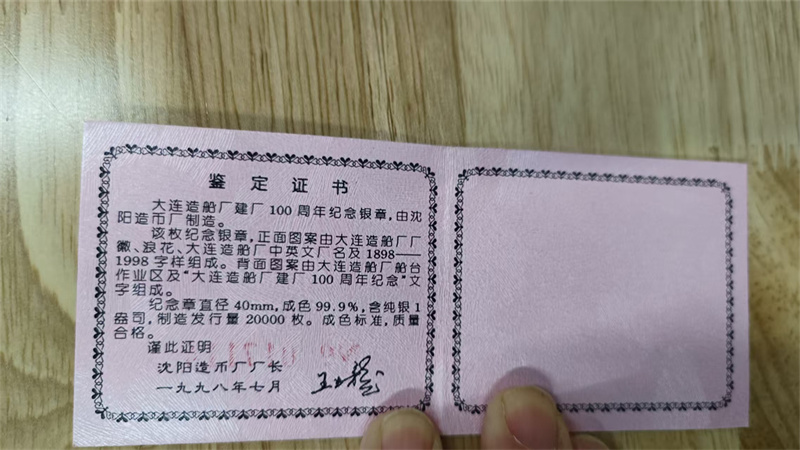 鉴定证书
大连造船厂建厂100周年纪念银章,由沈
阳造币厂制造。
该枚纪念银章,正面图案由大连造船厂厂
徽、浪花、大连造船厂中英文厂名及1898——
1998字样组成。背面图案由大连造船厂船台
作业区及“大连造船厂建厂100周年纪念”文
字组成。
纪念章直径40mm,成色99.9%,含纯银1
盎司,制造发行量20000枚。成色标准,质量
合格。
谨此证明
沈阳造币厂厂长
一九九八年七月